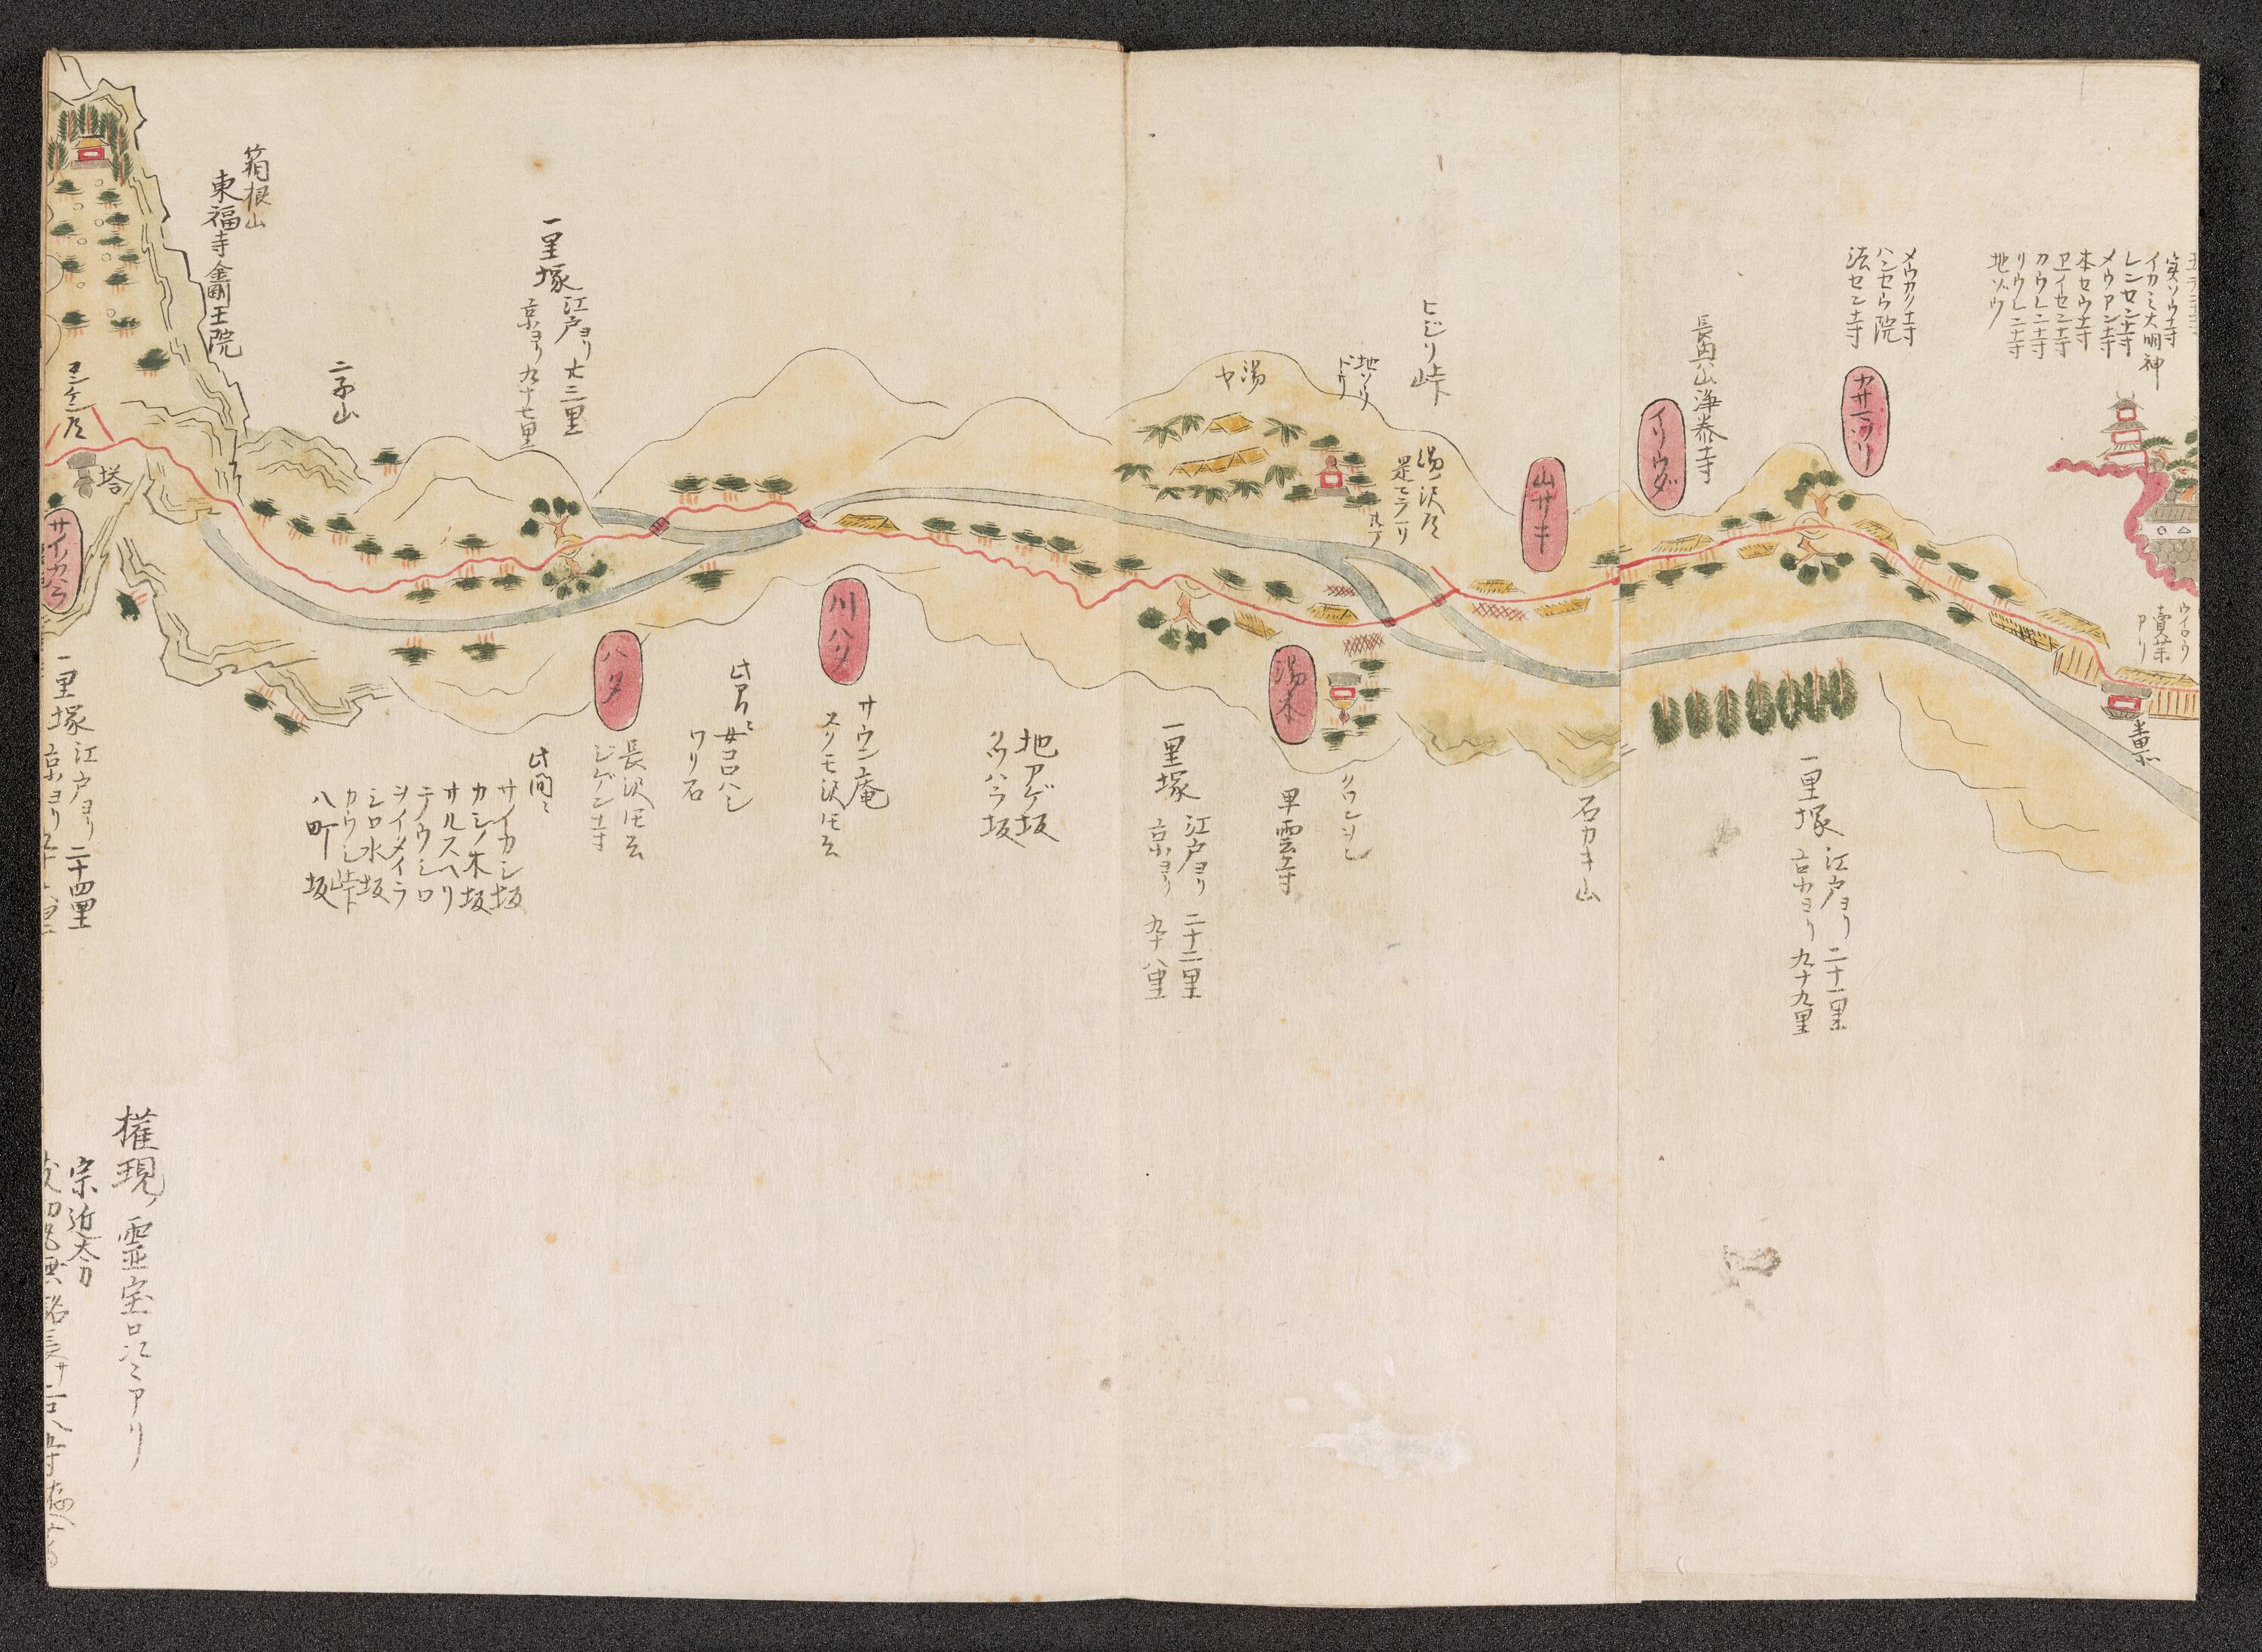 実ソウ寺
イカミ大明神
レンセン寺
メウアン寺
本セウ寺
カウレン寺
リウレン寺
地ゾウ
メウカク寺
ハンセウ院
法セン寺
カサマツリ
長興山浄泰寺
イリウダ
山サキ
ウイロウ
賣薬
アリ
一里塚
江戸ヨリ 二十一里
京ヨリ 九十九里
石カキ山
ヒジリ峠
地ソウ
ドウ
湯ヤ
湯沢片
湯本
早雲寺
一里塚
江戸ヨリ 二十二里
京ヨリ 九十八里
地アゲ坂
クツハラ坂
川ハタ
サウン庵
スクモ沢圧云
此アタリニ
女コロハシ
ワリ石
ハタ
長沢圧云
ジゲン寺
一里塚
江戸ヨリ 廿三里
京ヨリ 九十七里
此間ニ
サイカシ坂
カシノ木坂
サルスヘリ
テウシロ
ヲイタイラ
シロ水坂
カウシ峠
八町坂
二子山
箱根山
東福寺金剛王院
塔
サイノカハラ
一里塚
江戸ヨリ 二十四里
権現ノ霊宝品々アリ
宗近太刀